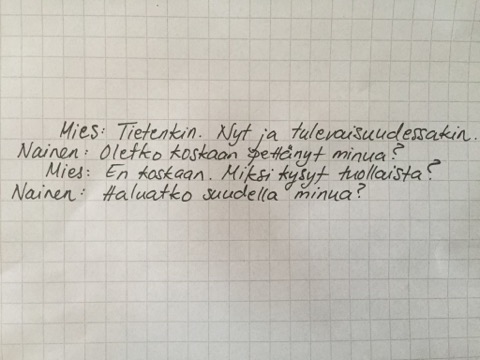 Mies: Tietenkin. Nyt ja tulevaisuudessakin.
Nainen: Oletko koskaan pettänyt minua?
Mies: En koskaan. Miksi kysyt tuollaista?
Nainen: Haluatko suudella minua?